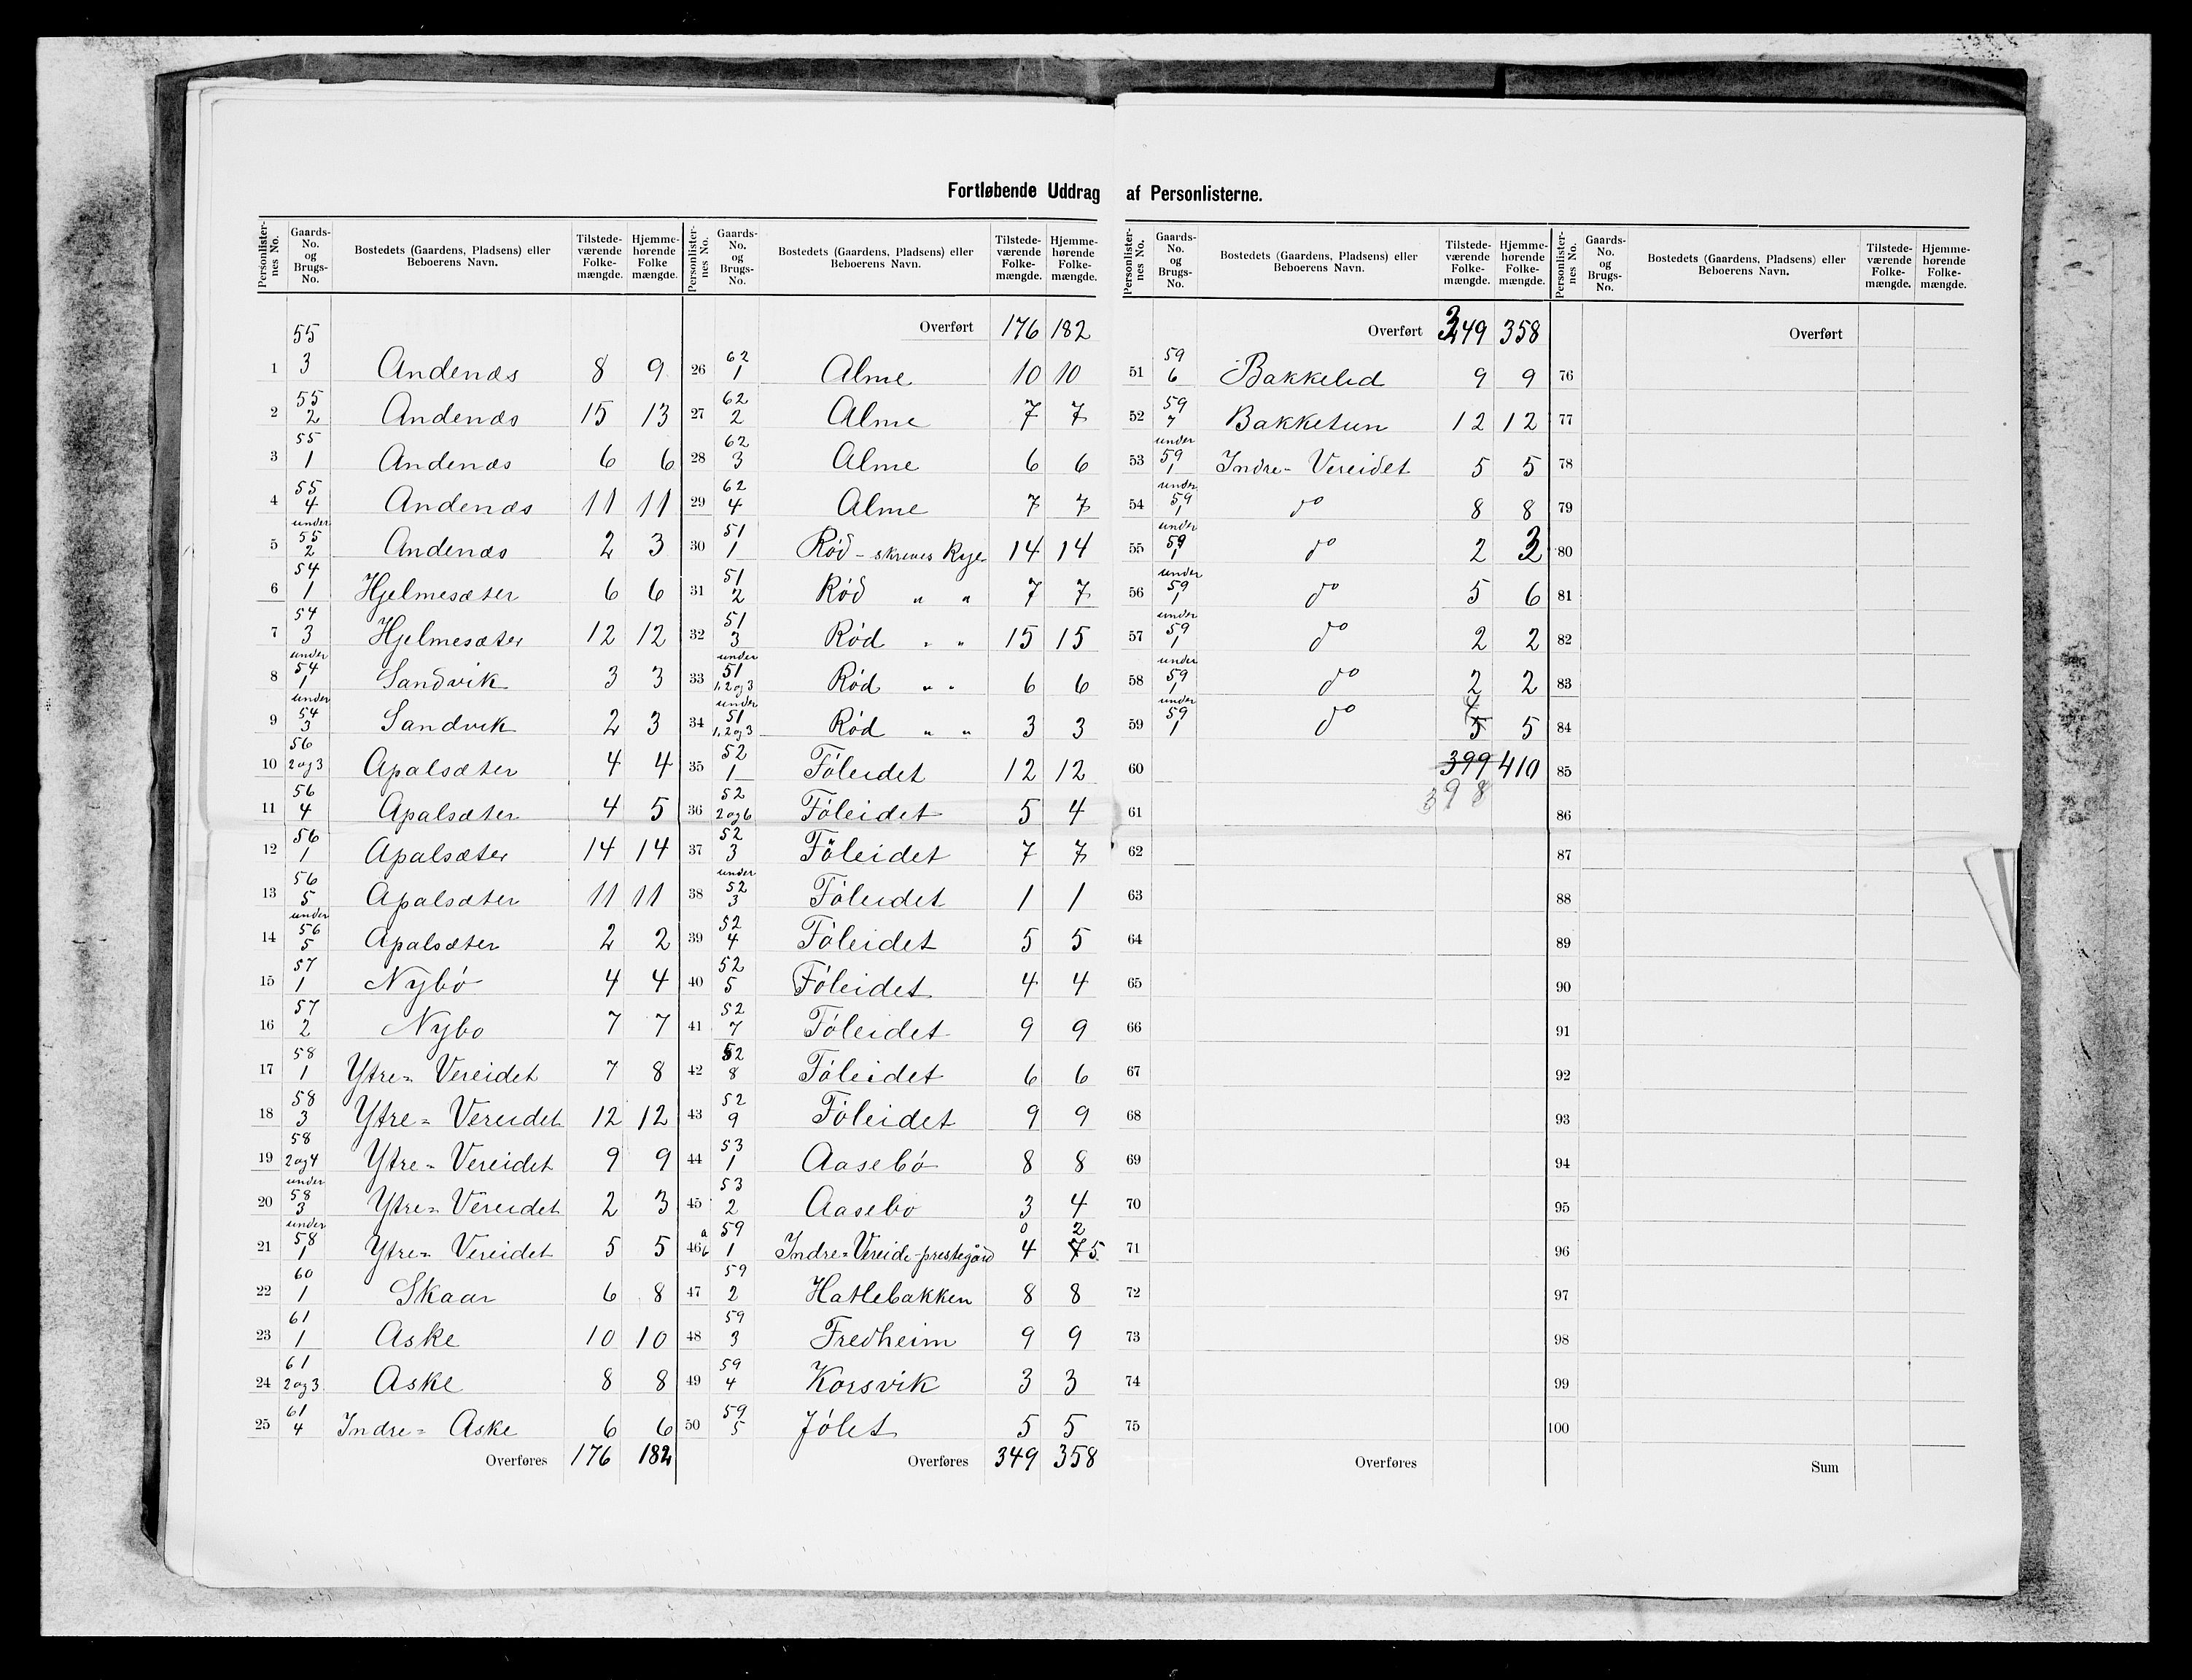 Fortløbende Uddrag af Personlisterne.
Personlister-nes No. | Gaards-No. og Brugs-No. | Bostedets (Gaardens, Pladsens) eller Beboerens Navn. | Tilstede-værende Folke-mængde. | Hjemme-hørende Folke mængde.
1 | 55 3 | Andenæs | 8 | 9
2 | 55 2 | Andenæs | 15 | 13
3 | 55 1 | Andenæs | 6 | 6
4 | 55 4 | Andenæs | 11 | 11
5 | under 55 2 | Andenæs | 2 | 3
6 | 54 1 | Hjelmesæter | 6 | 6
7 | 54 3 | Hjelmesæter | 12 | 12
8 | under 54 1 | Sandvik | 3 | 3
9 | under 54 3 | Sandvik | 2 | 3
10 | 56 2 og 3 | Apalsæter | 4 | 4
11 | 56 4 | Apalsæter | 4 | 5
12 | 56 1 | Apalsæter | 14 | 14
13 | 56 5 | Apalsæter | 11 | 11
14 | under 56 5 | Apalsæter | 2 | 2
15 | 57 1 | Nybø | 4 | 4
16 | 57 2 | Nybo | 7 | 7
17 | 58 1 | Ytre= Vereidet | 7 | 8
18 | 58 3 | Ytre= Vereidet | 12 | 12
19 | 58 2 og 4 | Ytre= Vereidet | 9 | 9
20 | under 58 3 | Ytre= Vereidet | 2 | 3
21 | under 58 1 | Ytre= Vereidet | 5 | 5
22 | 60 1 | Skaar | 6 | 8
23 | 61 1 | Aske | 10 | 10
24 | 61 2 og 3 | Aske | 8 | 8
25 | 61 4 | Indre= Aske | 6 | 6
Overføres | 176 | 182
Personlister-nes No. | Gaards-No. og Brugs-No. | Bostedets (Gaardens, Pladsens) eller Beboerens Navn. | Tilstede-værende Folke-mængde. | Hjemme-hørende Folke-mængde.
Overført | 176 | 182
26 | 62 1 | Alme | 10 | 10
27 | 62 2 | Alme | 7 | 7
28 | 62 3 | Alme | 6 | 6
29 | 62 4 | Alme | 7 | 7
30 | 51 1 | Rød - skrives Rye | 14 | 14
31 | 51 2 | Rød " " | 7 | 7
32 | 51 3 | Rød " " | 15 | 15
33 | under 51 1, 2 og 3 | Rød " " | 6 | 6
34 | under 51 1, 2 og 3 | Rød " " | 3 | 3
35 | 52 1 | Føleidet | 12 | 12
36 | 52 2 og 6 | Føleidet | 5 | 4
37 | 52 3 | Føleidet | 7 | 7
38 | under 52 3 | Føleidet | 1 | 1
39 | 52 4 | Føleidet | 5 | 5
40 | 52 5 | Føleidet | 4 | 4
41 | 52 7 | Føleidet | 9 | 9
42 | 52 8 | Føleidet | 6 | 6
43 | 52 9 | Føleidet | 9 | 9
44 | 53 1 | Aasebø | 8 | 8
45 | 53 2 | Aasebo | 3 | 4
46 a b | 59 1 | Indre=Vereide-prestegård | 0 4 | 2 7 5
47 | 59 2 | Hatlebakken | 8 | 8
48 | 59 3 | Fredheim | 9 | 9
49 | 59 4 | Korsvik | 3 | 3
50 | 59 5 | Jølet | 5 | 5
Overføres | 349 | 358
Personlister-nes No. | Gaards-No. og Brugs-No. | Bostedets (Gaardens, Pladsens) eller Beboerens Navn. | Tilstede-værende Folke-mængde. | Hjemme-hørende Folke-mængde.
Overført | 349 | 358
51 | 59 6 | Bakkelid | 9 | 9
52 | 59 7 | Bakketun | 12 | 12
53 | under 59 1 | Indre- Vereidet | 5 | 5
54 | under 59 1 | do | 8 | 8
55 | under 59 1 | do | 2 | 3
56 | under 59 1 | do | 5 | 6
57 | under 59 1 | do | 2 | 2
58 | under 59 1 | do | 2 | 2
59 | under 59 1 | do | 4 5 | 5
60 | 399 | 410
61 | 398
62
63
64
65
66
67
68
69
70
71
72
73
74
75
Overføres
Personlister-nes No. | Gaards-No. og Brugs-No. | Bostedets (Gaardens, Pladsens) eller Beboerens Navn. | Tilstede-værende Folke-mængde. | Hjemme-hørende Folke-mængde.
Overført
76
77
78
79
80
81
82
83
84
85
86
87
88
89
90
91
92
93
94
95
96
97
98
99
100
Sum